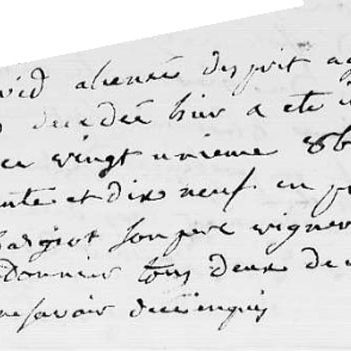 vid alienée desprit ag
decedée hier a ete i
ce vingt unieme 8b
ante et dix neuf. en p
bargiot son pere vigner
donnier tous deux de
ne savoir de ce enquis